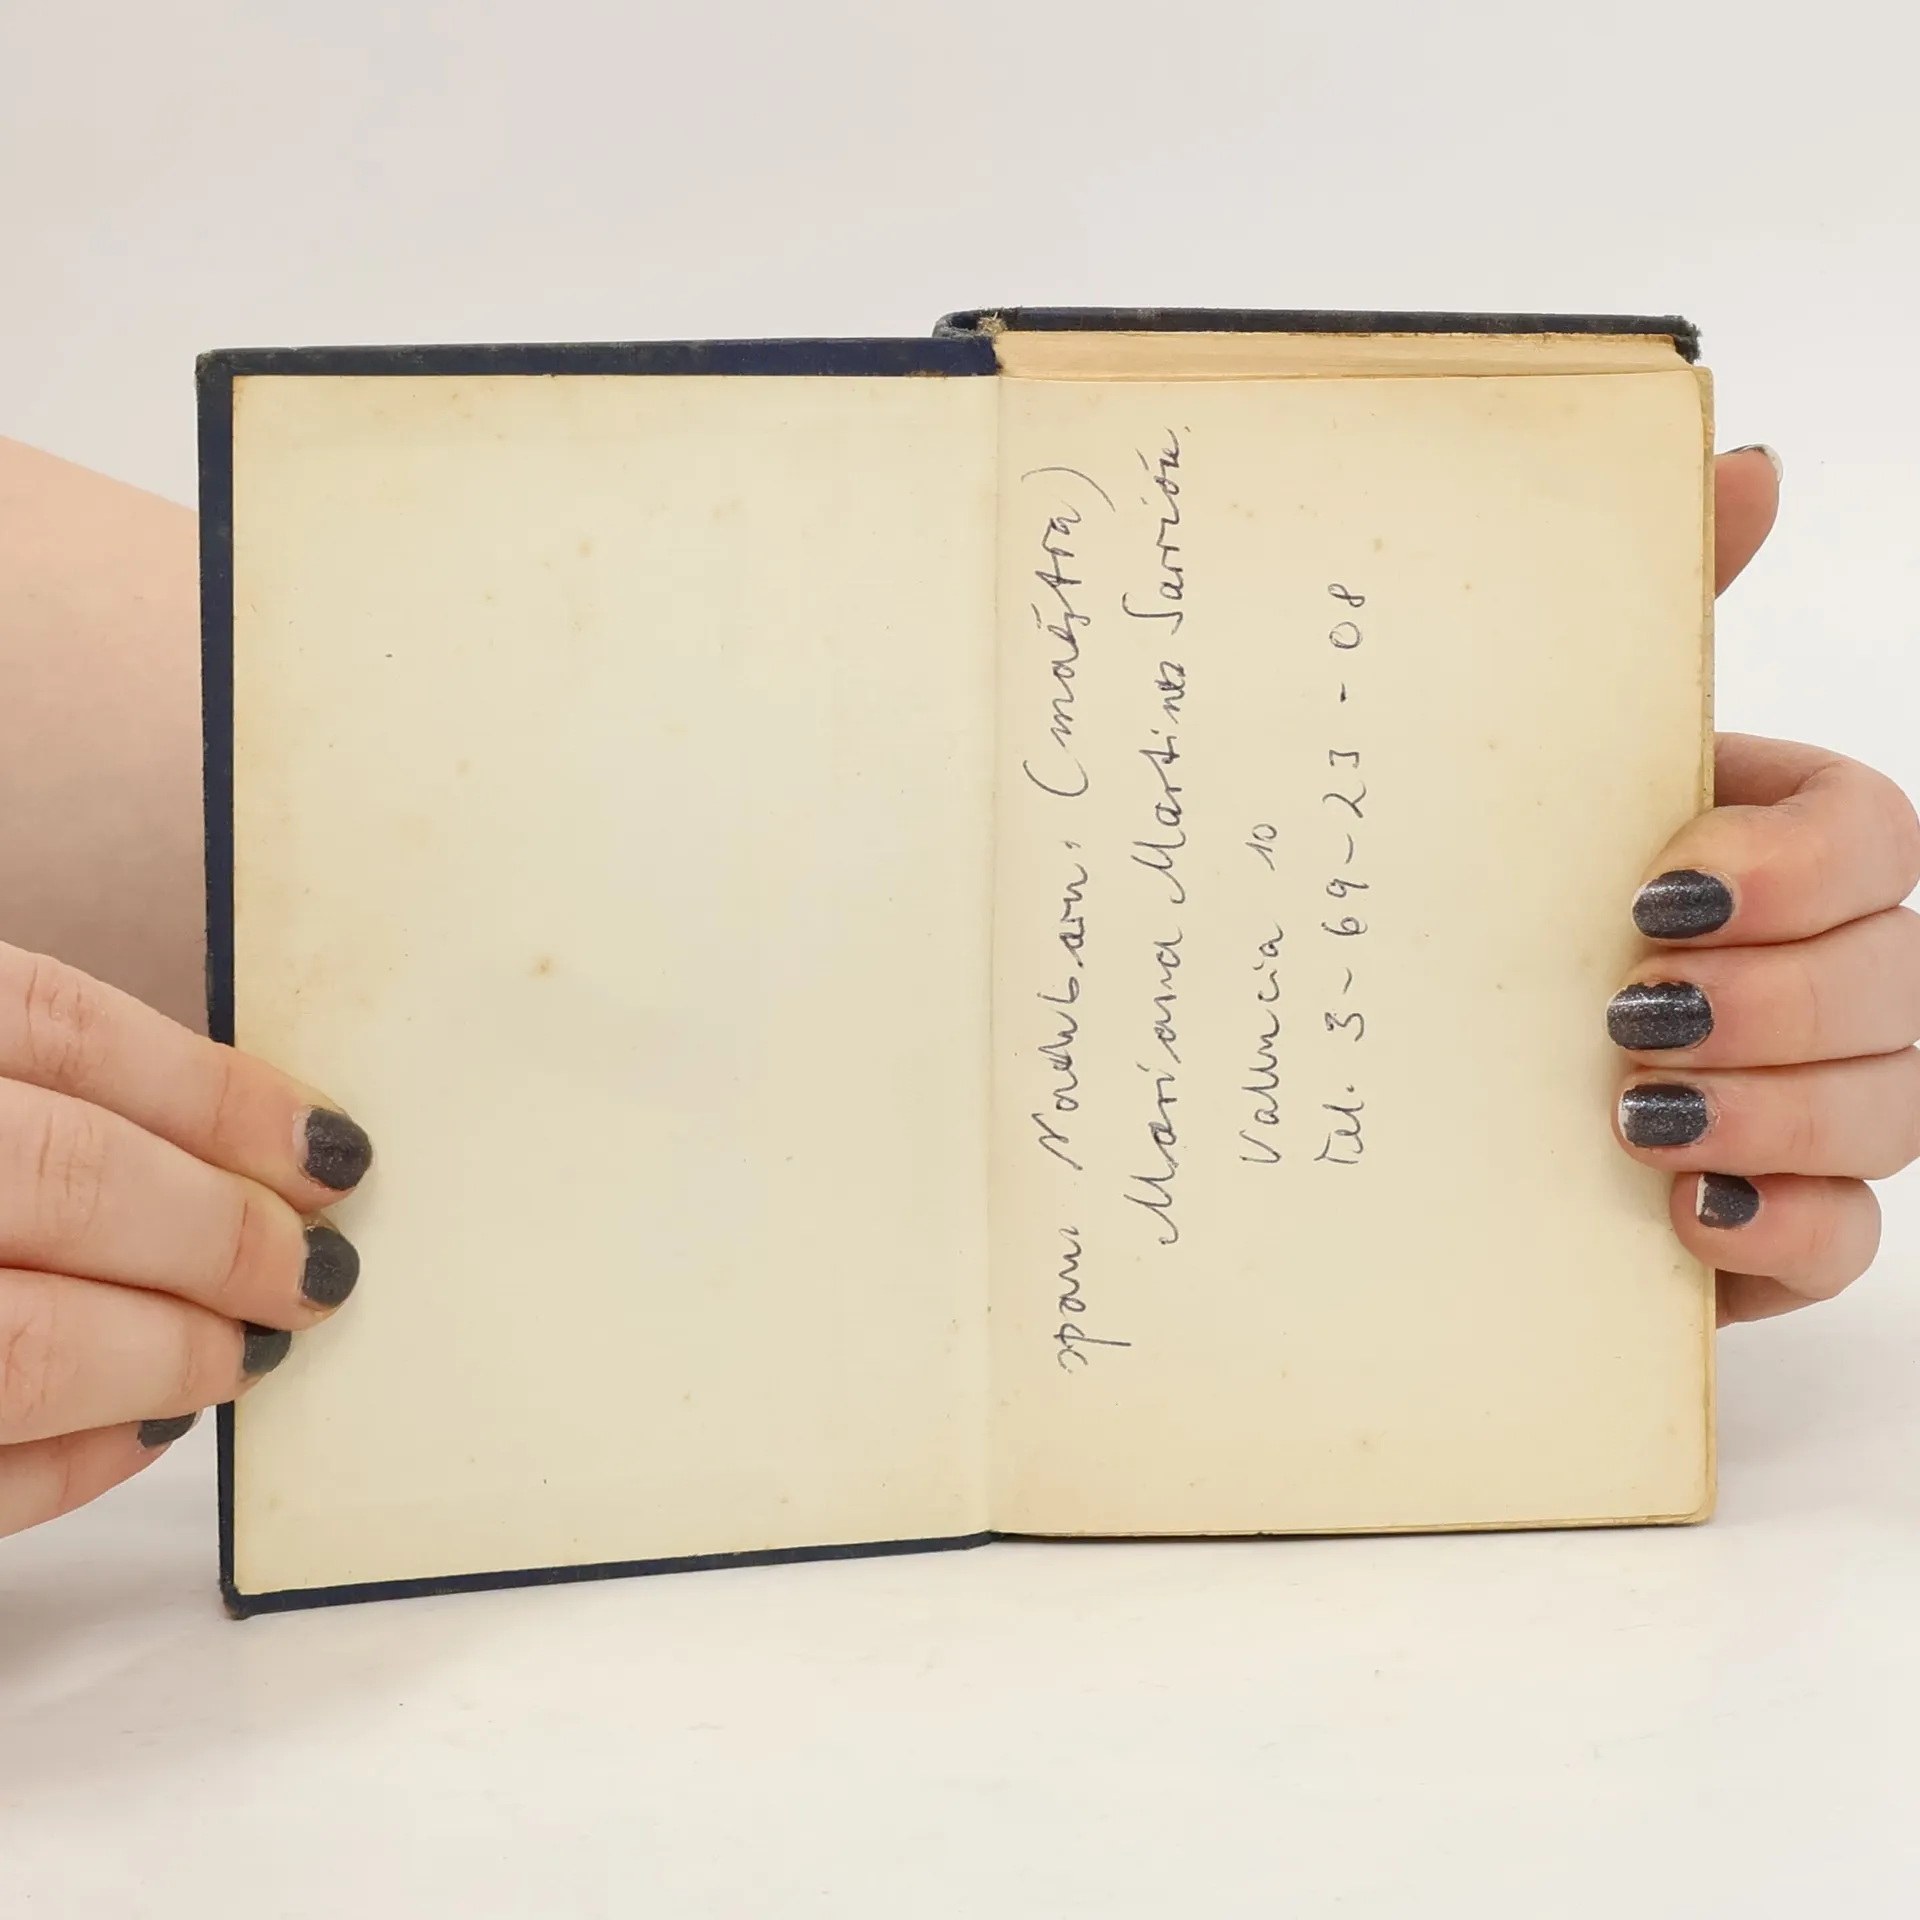 span. Nachbarn: (maestra)
Mariana Martinez Sarrión.
Valencia 10
Tel. 3-69-23-08